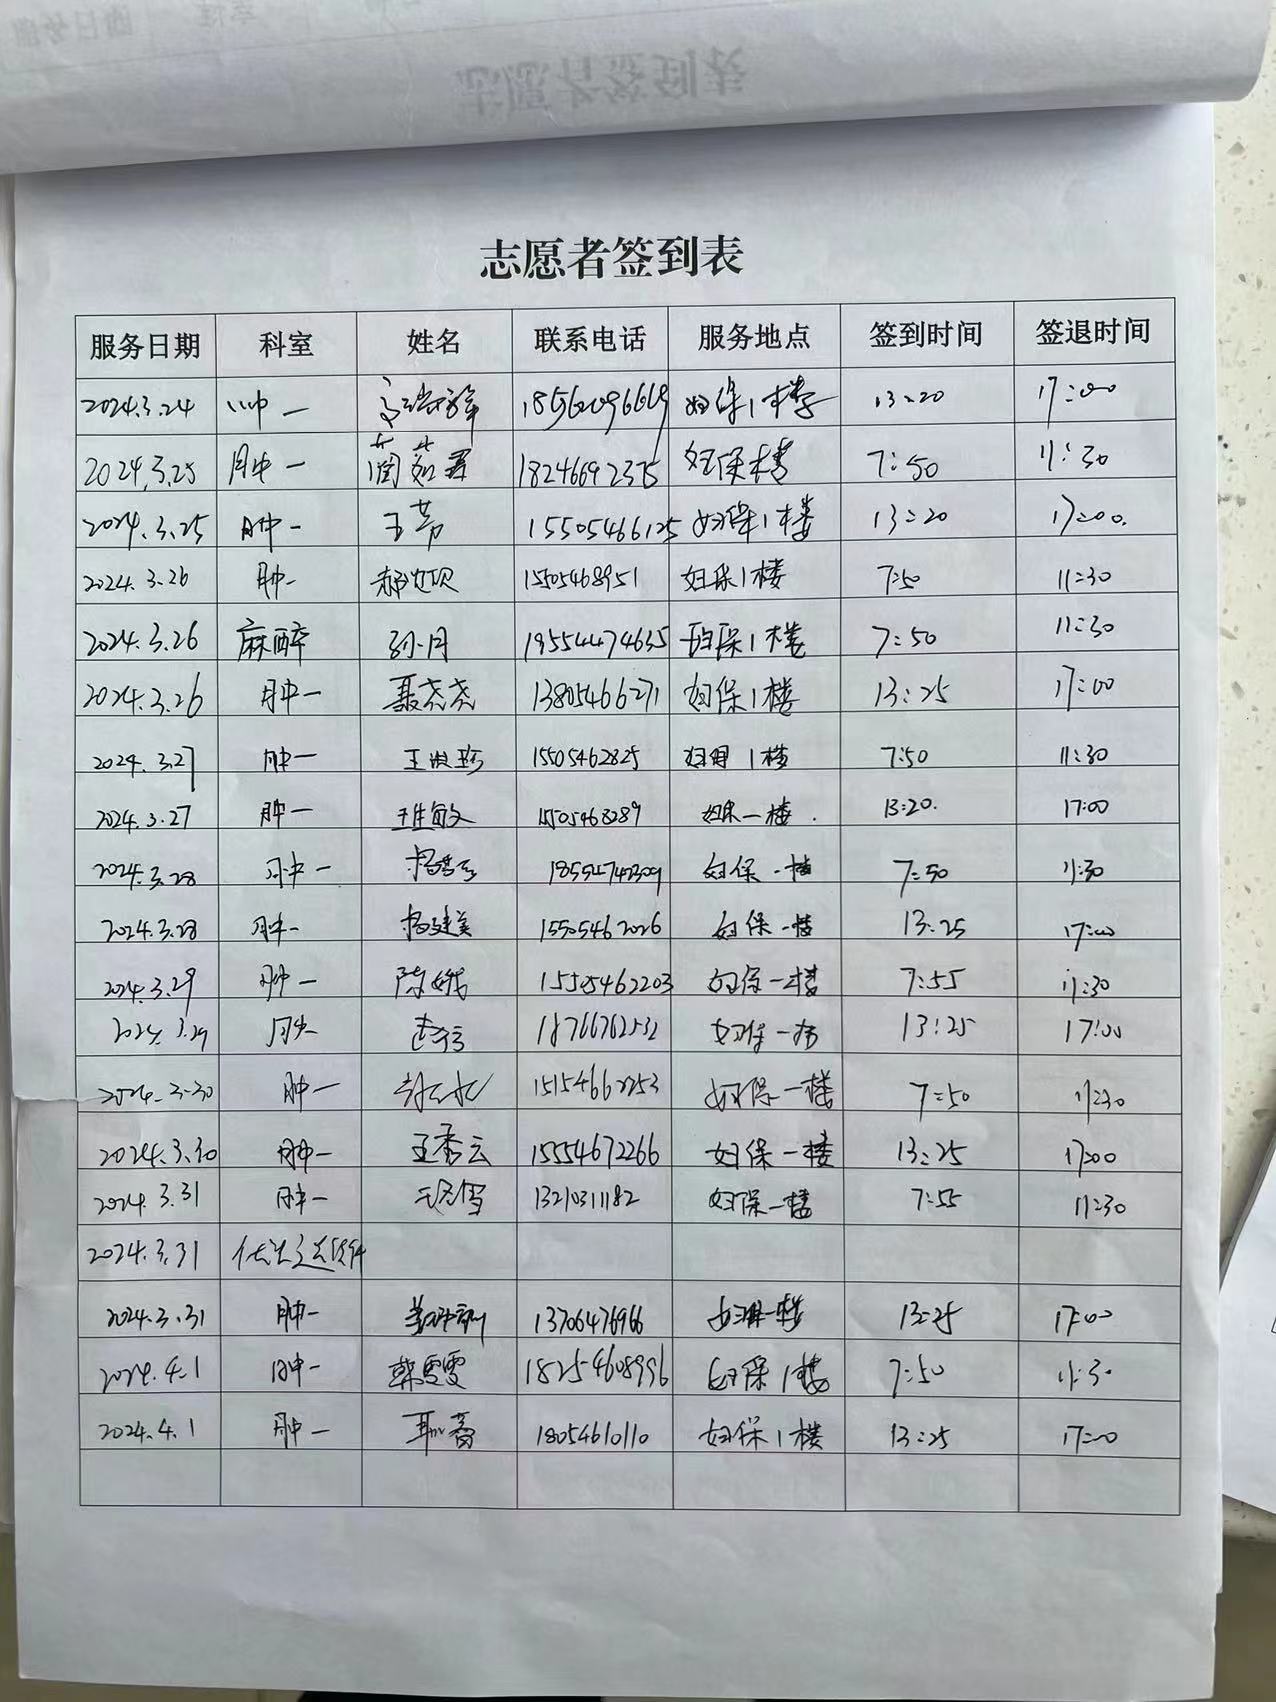 志愿者签到表
服务日期 科室 姓名 联系电话 服务地点 签到时间 签退时间
2024.3.24 肿一 妇保1楼 13:20 17:00
2024.3.25 肿一 18246692375 妇保楼 7:50 11:30
2024.3.25 肿一 王芳 15505466125 妇保1楼 13:20 17:00.
2024.3.26 肿一 15505468951 妇保1楼 7:50 11:30
2024.3.26 麻醉 孙月 19554474635 妇保1楼 7:50 11:30
2024.3.26 肿一 聂尧尧 13805466271 妇保1楼 13:25 17:00
2024.3.27 肿一 15505462825 1楼 7:50 11:30
2024.3.27 肿一 15505468289 妇保一楼. 13:20. 17:00
2024.3.28 肿一 妇保一楼 7:50 11:30
2024.3.28 肿一 杨建美 15505462026 妇保一楼 13:25 17:00
2024.3.29 肿一 陈娥 15505462203 妇保一楼 7:55 11:30
2024.3.29 18766762532 妇保一楼 13:25 17:00
2024.3.30 肿一 15154662253 妇保一楼 7:50 11:30
2024.3.30 肿一 王秀云 15554672266 妇保一楼 13:25 17:00
2024.3.31 肿一 13210311182 妇保一楼 7:55 11:30
2024.3.31
2024.3.31 肿一 13706476966 妇保一楼 13:25 17:00
2024.4.1 肿一 韩雯雯 18254608996 妇保1楼 7:50 11:30
2024.4.1 肿一 18054610110 妇保1楼 13:25 17:00